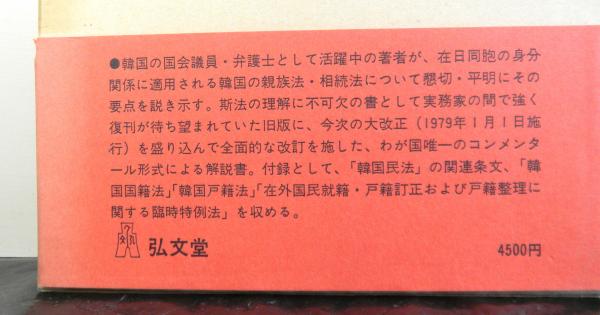 ●韓国の国会議員・弁護士として活躍中の著者が、在日同胞の身分
関係に適用される韓国の親族法・相続法について懇切・平明にその
要点を説き示す。斯法の理解に不可欠の書として実務家の間で強く
復刊が待ち望まれていた旧版に、今次の大改正（1979年1月1日施
行）を盛り込んで全面的な改訂を施した、わが国唯一のコンメンタ
ール形式による解説書。付録として、「韓国民法」の関連条文、「韓
国国籍法」「韓国戸籍法」「在外国民就籍・戸籍訂正および戸籍整理に
関する臨時特例法」を収める。
弘文堂
4500円